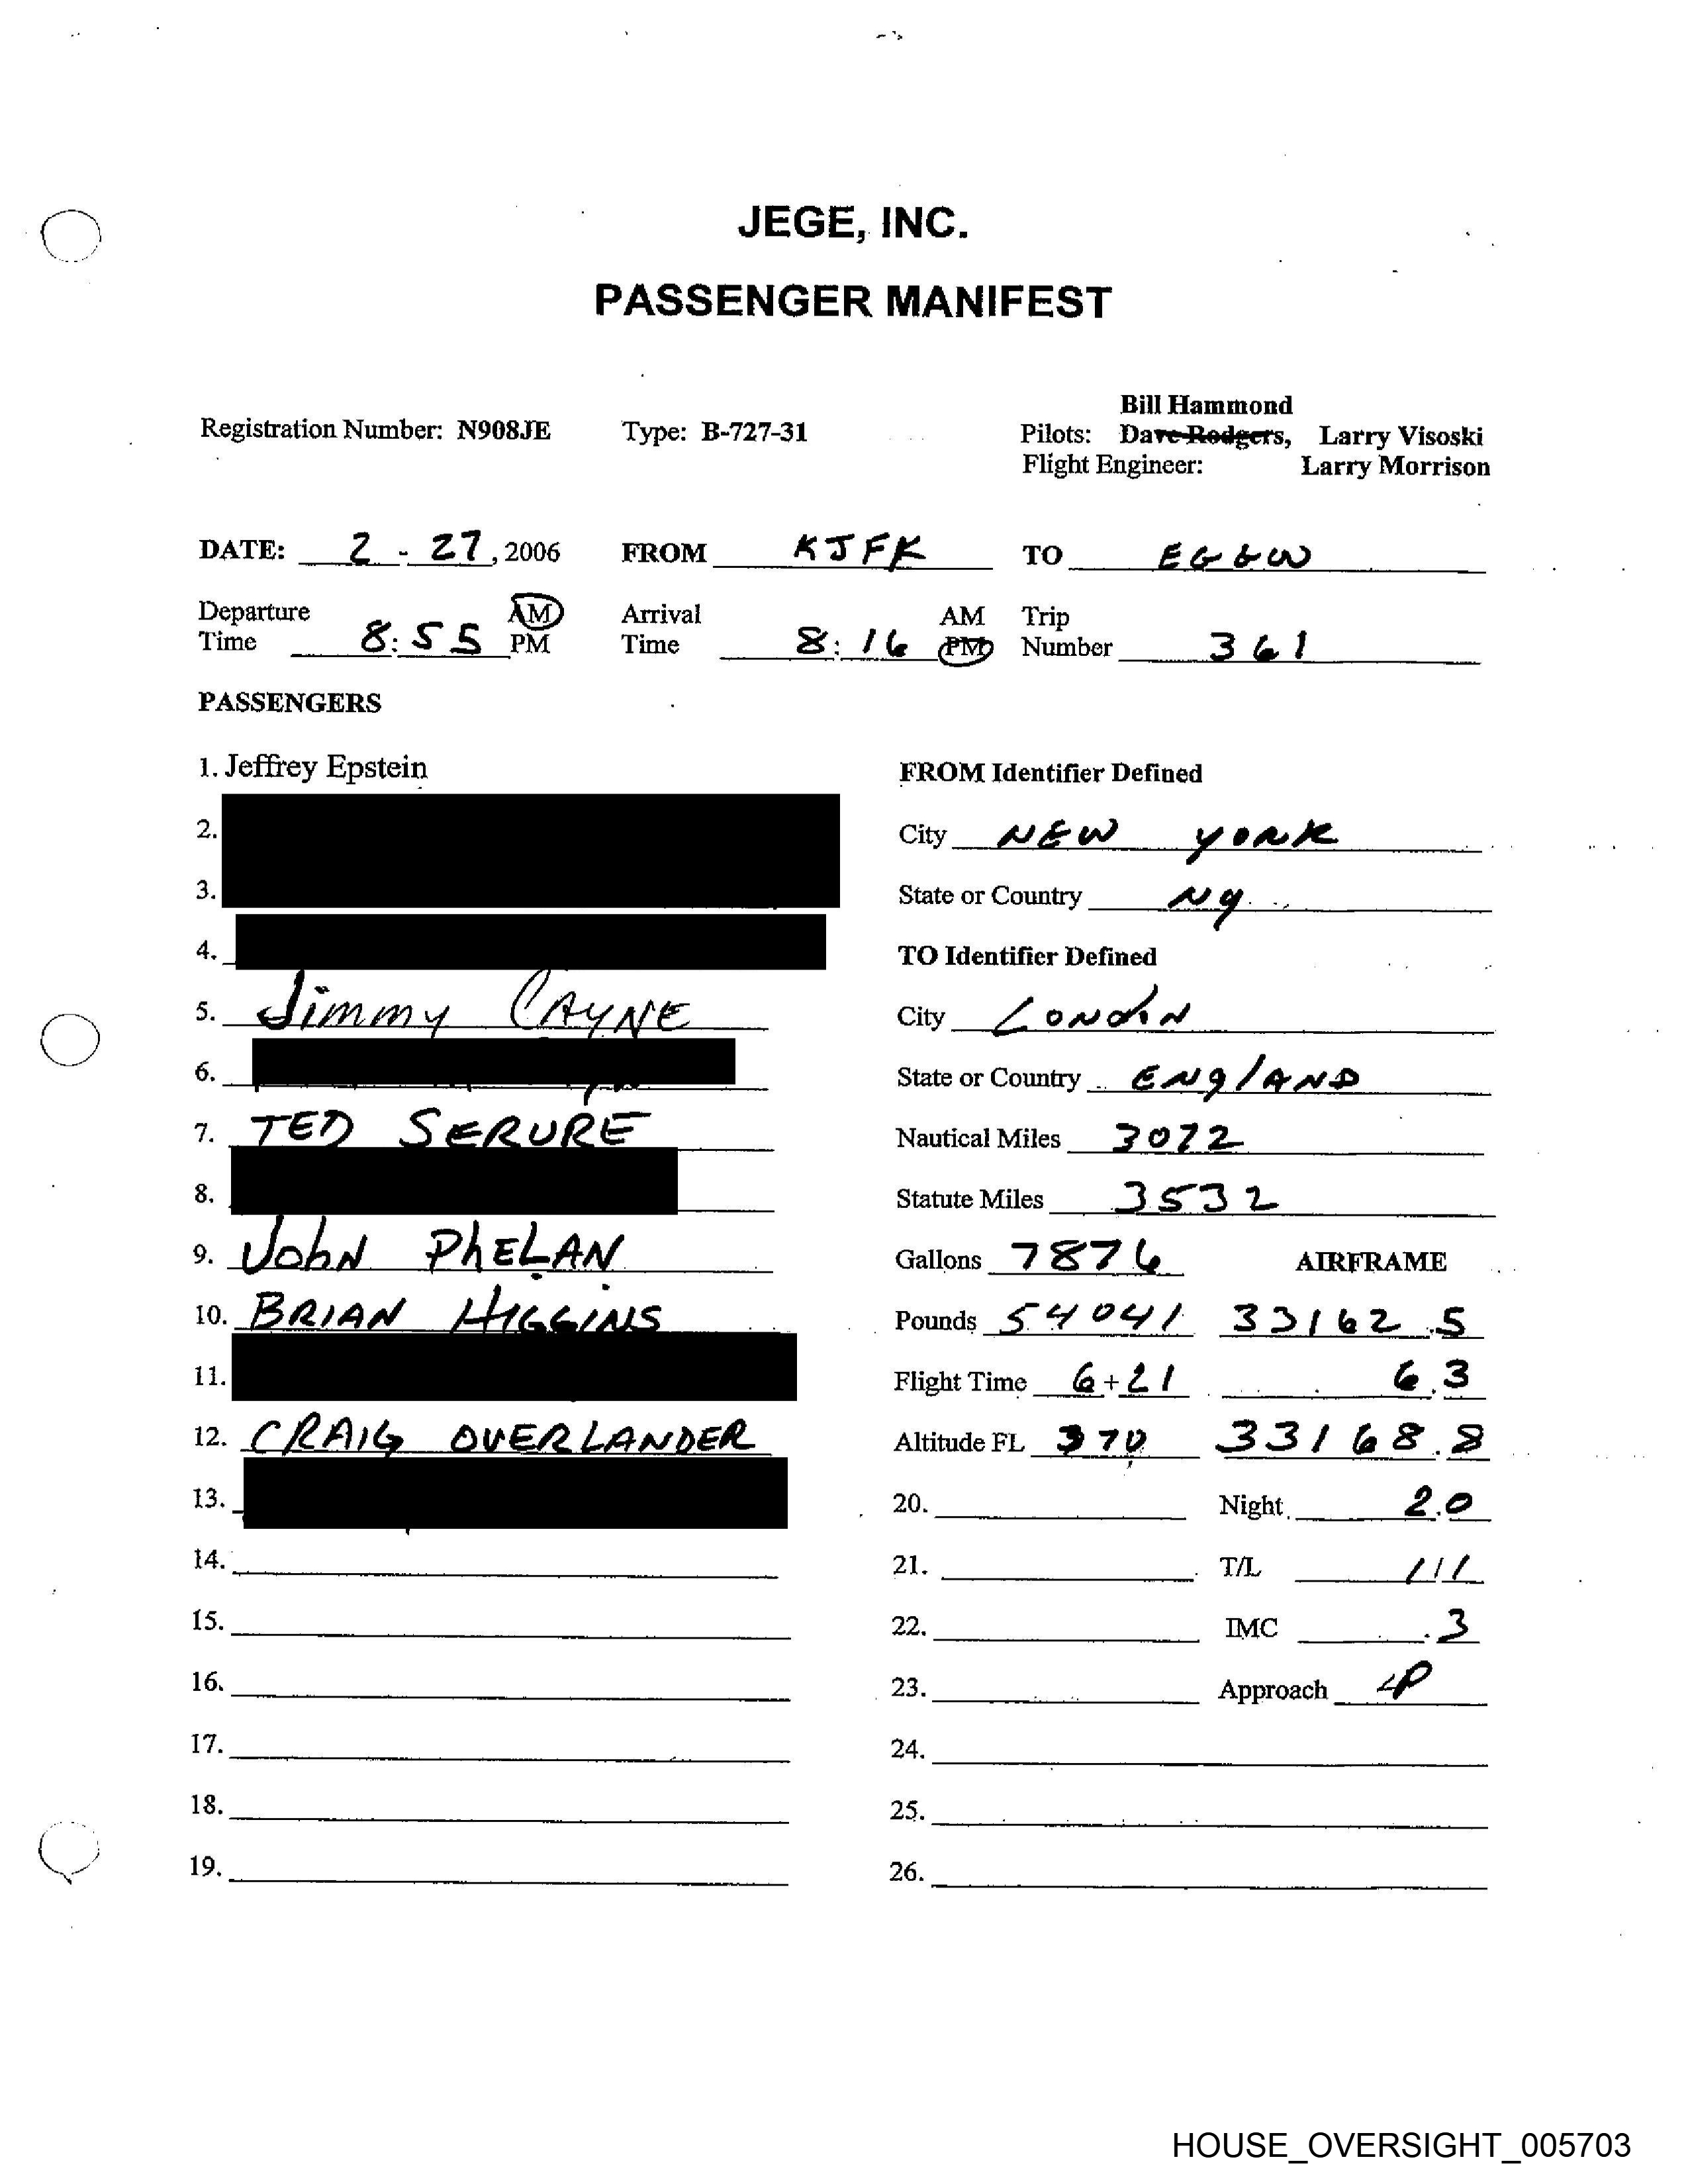 JEGE, INC.
PASSENGER MANIFEST
Bill Hammond
Registration Number: N908JE Type: B-727-31 Pilots: Dave Rodgers, Larry Visoski
Flight Engineer: Larry Morrison
DATE: 2 - 27, 2006 FROM KJFK TO EGGW
Departure Time 8:55 AM PM Arrival Time 8:16 AM PM Trip Number 361
PASSENGERS
1. Jeffrey Epstein FROM Identifier Defined
2. City NEW YORK
3. State or Country NY
4. TO Identifier Defined
5. Jimmy CAYNE City LONDON
6. State or Country ENglAND
7. TED SERURE Nautical Miles 3072
8. Statute Miles 3532
9. JohN PhELAN Gallons 7876 AIRFRAME
10. BRIAN HIGGINS Pounds 54041 33162.5
11. Flight Time 6+21 6.3
12. CRAIG OVERLANDER Altitude FL 370 33168.8
13. 20. Night 2.0
14. 21. T/L 1/1
15. 22. IMC .3
16. 23. Approach
17. 24.
18. 25.
19. 26.
HOUSE_OVERSIGHT_005703